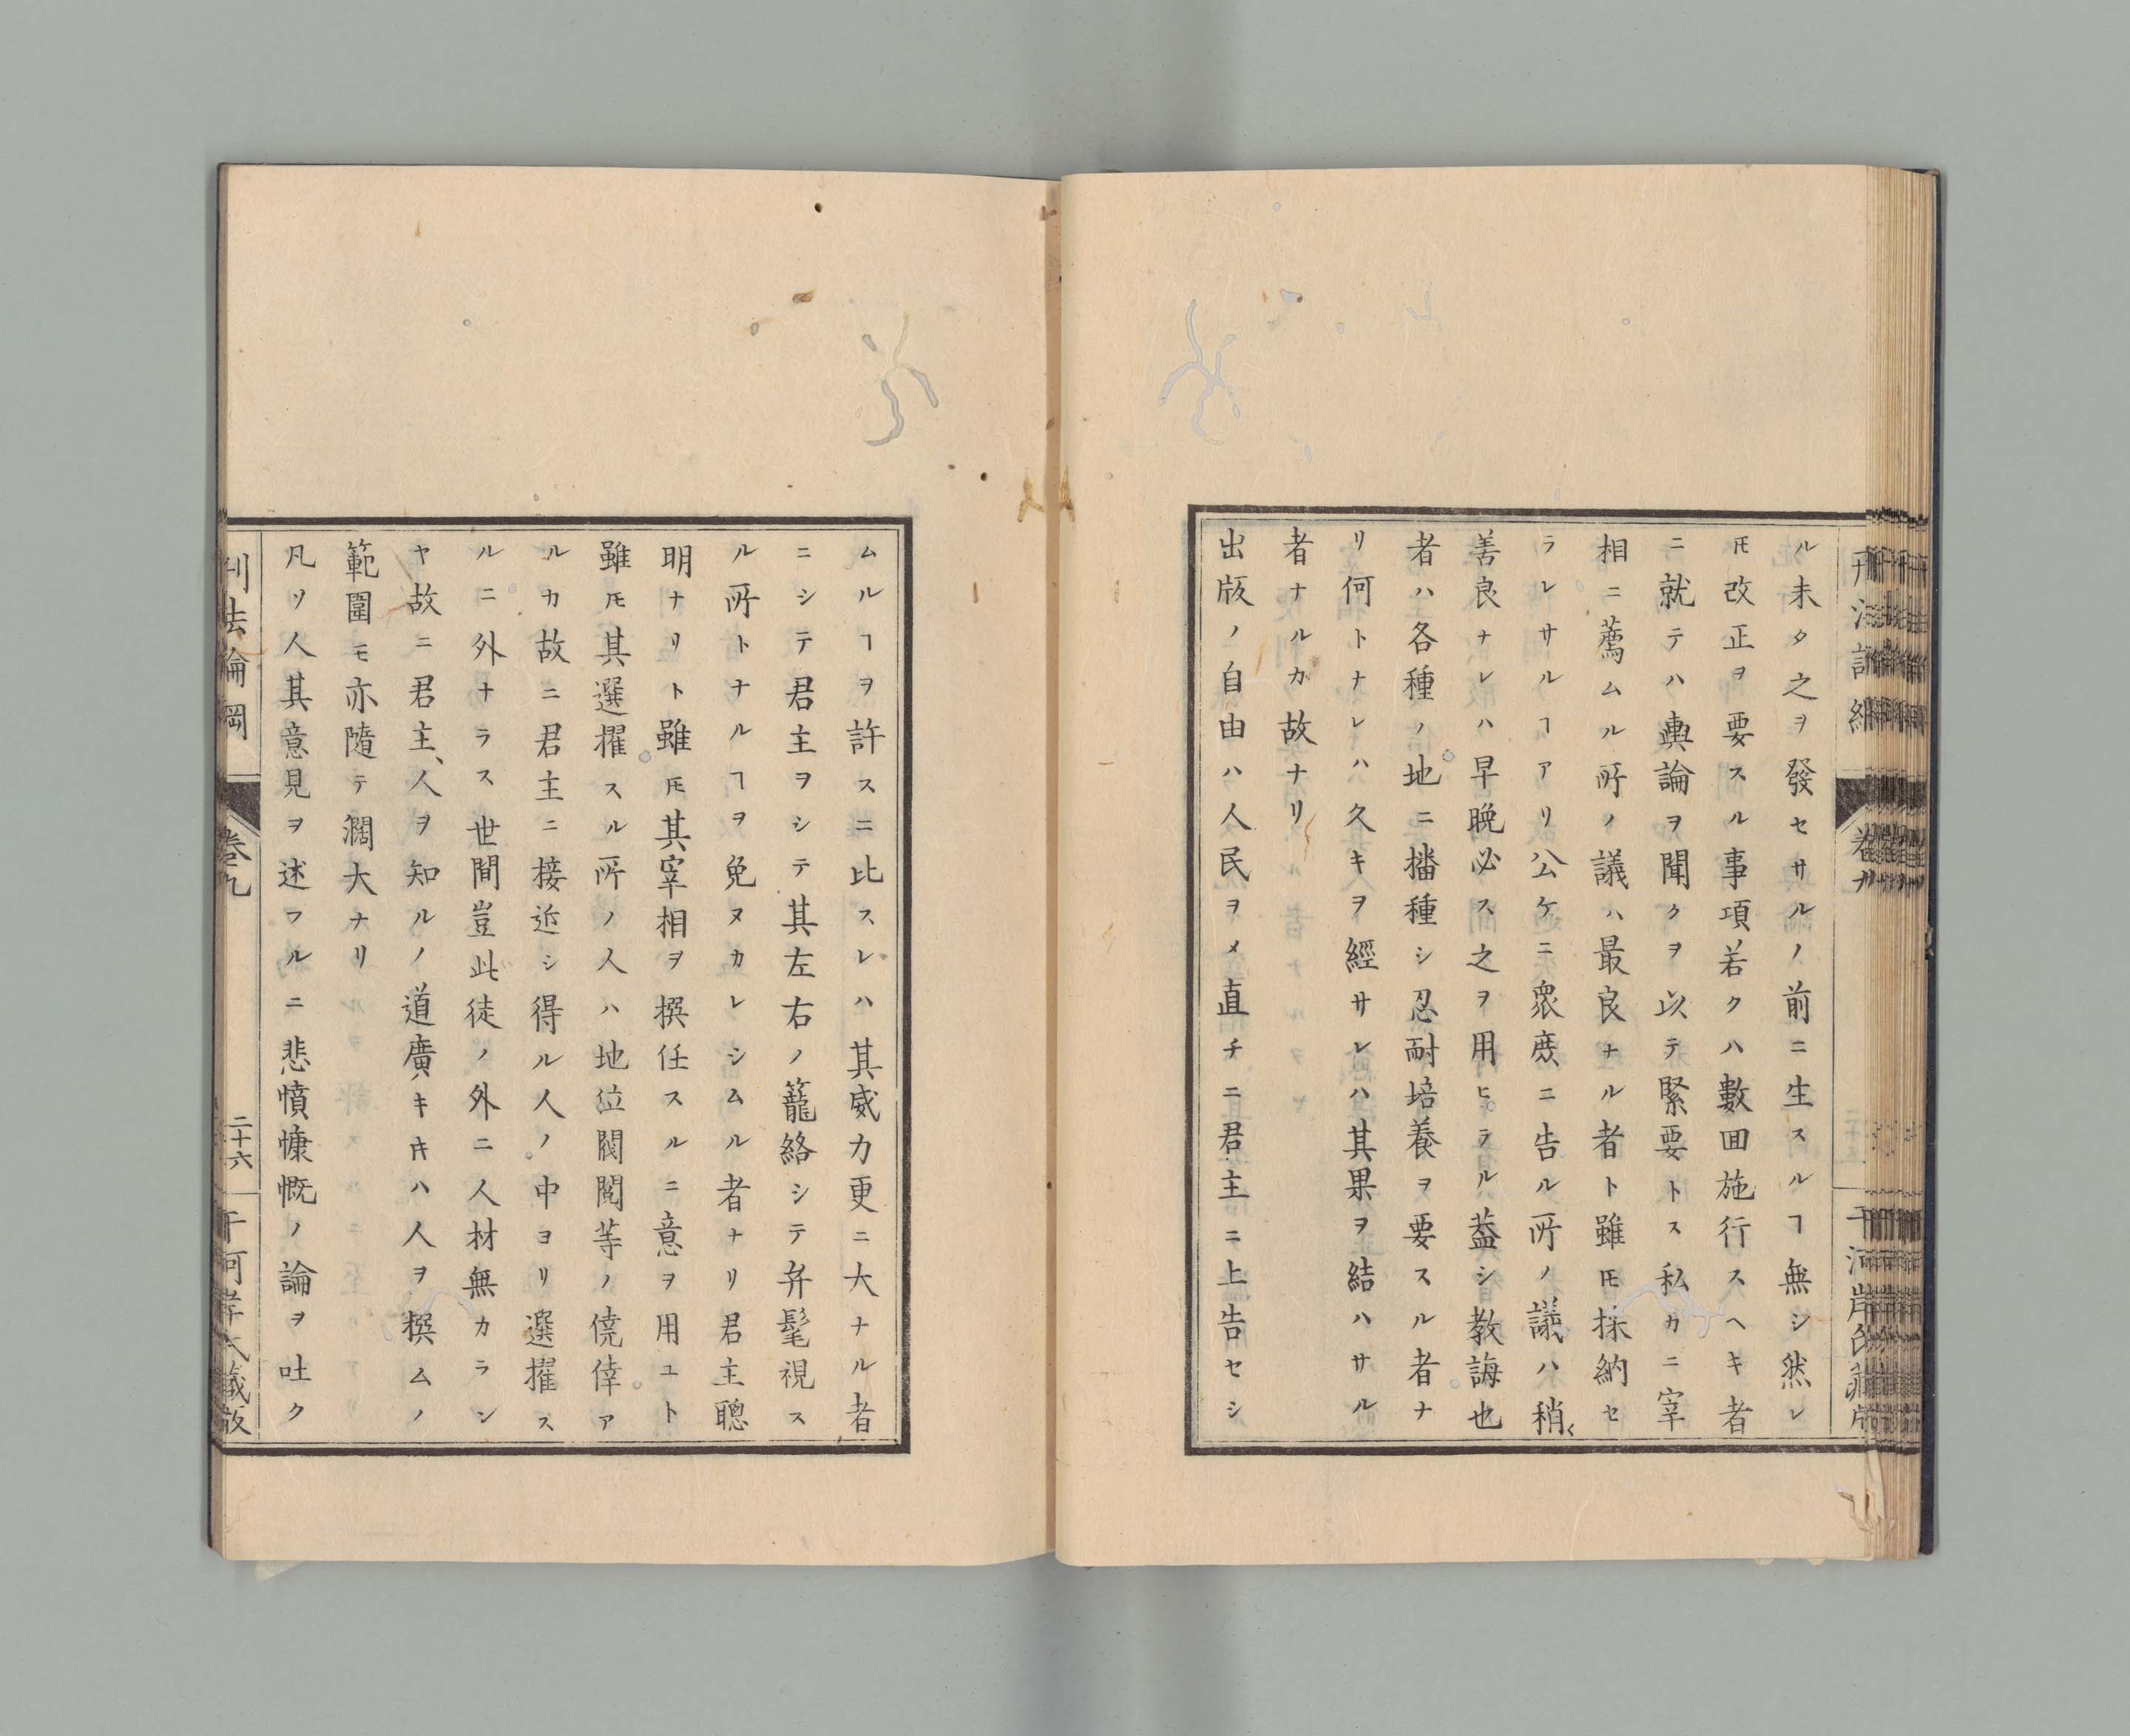 ル未タ之ヲ發セサルノ前ニ生スルヿ無シ然レ
𪜈改正ヲ要スル事項若クハ數囬施行スヘキ者
ニ就テハ輿論ヲ聞クヲ以テ緊要トス私カニ宰
相ニ薦ムル所ノ議ハ最良ナル者ト雖𪜈採納セ
ラレサルヿアリ公ケニ衆庶ニ告ル所ノ議ハ稍〻
善良ナレハ早晚必ス之ヲ用ヒラル葢シ教誨也
者ハ各種ノ地ニ播種シ忍耐培養ヲ要スル者ナ
リ何トナレハ久キヲ經サレハ其果ヲ結ハサル
者ナルカ故ナリ
出版ノ自由ハ人民ヲメ直チニ君主ニ上告セシ
ムルヿヲ許スニ比スレハ其威力更ニ大ナル者
ニシテ君主ヲシテ其左右ノ籠絡シテ弁髦視ス
ル所トナルヿヲ免ヌカレシムル者ナリ君主聰
明ナリト雖𪜈其宰相ヲ撰任スルニ意ヲ用ユト
雖𪜈其選擢スル所ノ人ハ地位閥閲等ノ僥倖ア
ルカ故ニ君主ニ接近シ得ル人ノ中ヨリ選擢ス
ルニ外ナラス世間豈此徒ノ外ニ人材無カラン
ヤ故ニ君主、人ヲ知ルノ道廣キ𪜈ハ人ヲ撰ムノ
範圍モ亦隨テ濶大ナリ
凡ソ人其意見ヲ述フルニ悲憤慷慨ノ論ヲ吐ク
刑法論綱
卷九
二十六